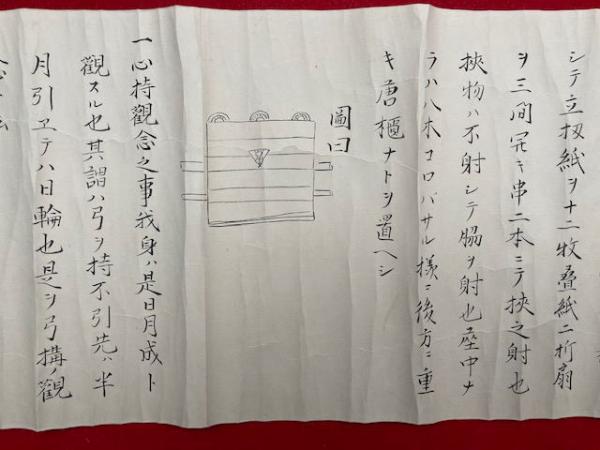 シテ立扨紙ヲ十二牧疊紙ニ折扇
ヲ三間冥キ串二本ニテ挾之射也
挾物ハ不射シテ腸ヲ射也座中ナ
ラハ八木コロバサル様ニ後方ニ重
キ唐櫃ナトヲ置ヘシ
圖曰
一心持觀念之事我身ハ是日月成ト
觀スル也其謂ハ弓ヲ持不引先ハ半
月引ヱテハ日輪也是ヲ弓搆ノ觀